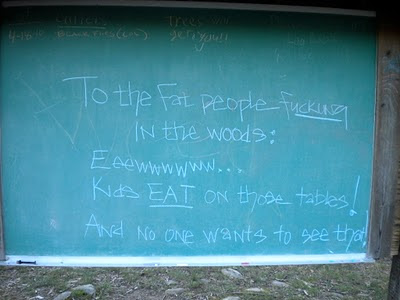 Trees
To the Fat people fucking
in the woods:
Eeewwwwww...
Kids EAT on those tables!
And no one wants to see that!